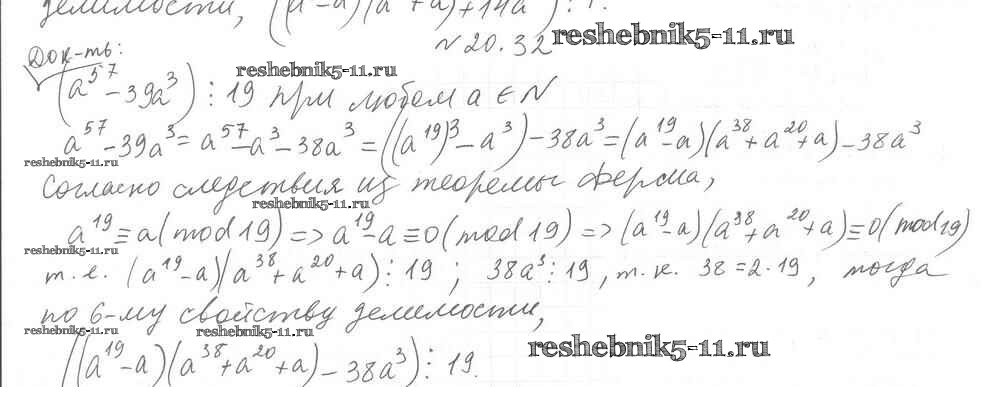 делимости, ((a⁷-a)(a⁷+a)+14a²) ⋮ 7.
N 20.32 reshebnik5-11.ru
Док-ть:
reshebnik5-11.ru
(a⁵⁷ - 39a³) ⋮ 19 при любом a ∈ N
a⁵⁷ - 39a³ = a⁵⁷ - a³ - 38a³ = ((a¹⁹)³ - a³) - 38a³ = (a¹⁹ - a)(a³⁸ + a²⁰ + a) - 38a³
reshebnik5-11.ru
Согласно следствия из теоремы Ферма,
reshebnik5-11.ru
a¹⁹ ≡ a (mod 19) => a¹⁹ - a ≡ 0 (mod 19) => (a¹⁹ - a)(a³⁸ + a²⁰ + a) ≡ 0 (mod 19)
reshebnik5-11.ru
т.е. (a¹⁹ - a)(a³⁸ + a²⁰ + a) ⋮ 19 ; 38a³ ⋮ 19, т.к. 38 = 2·19, тогда
по 6-му свойству делимости,
reshebnik5-11.ru reshebnik5-11.ru
reshebnik5-11.ru
((a¹⁹ - a)(a³⁸ + a²⁰ + a) - 38a³) ⋮ 19.